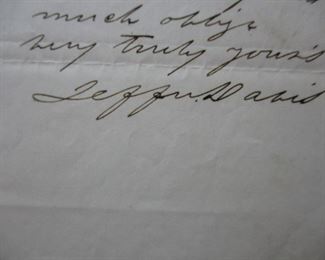 much oblige
very truly yours
Jeffn. Davis